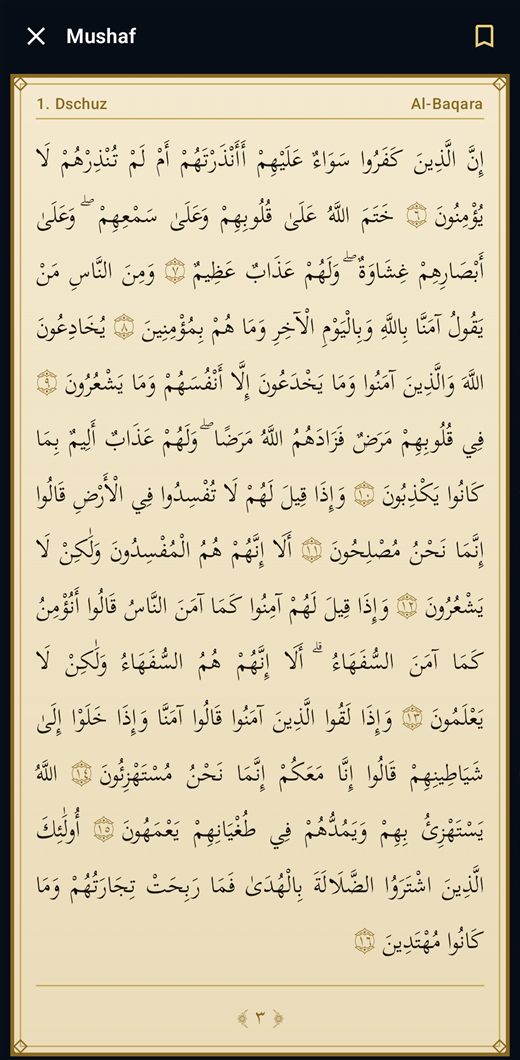 Mushaf
1. Dschuz
Al-Baqara
إِنَّ الَّذِينَ كَفَرُوا سَوَاءٌ عَلَيْهِمْ أَأَنْذَرْتَهُمْ أَمْ لَمْ تُنْذِرْهُمْ لَا
يُؤْمِنُونَ ٦ خَتَمَ اللَّهُ عَلَىٰ قُلُوبِهِمْ وَعَلَىٰ سَمْعِهِمْ ۖ وَعَلَىٰ
أَبْصَارِهِمْ غِشَاوَةٌ ۖ وَلَهُمْ عَذَابٌ عَظِيمٌ ٧ وَمِنَ النَّاسِ مَنْ
يَقُولُ آمَنَّا بِاللَّهِ وَبِالْيَوْمِ الْآخِرِ وَمَا هُمْ بِمُؤْمِنِينَ ٨ يُخَادِعُونَ
اللَّهَ وَالَّذِينَ آمَنُوا وَمَا يَخْدَعُونَ إِلَّا أَنْفُسَهُمْ وَمَا يَشْعُرُونَ ٩
فِي قُلُوبِهِمْ مَرَضٌ فَزَادَهُمُ اللَّهُ مَرَضًا ۖ وَلَهُمْ عَذَابٌ أَلِيمٌ بِمَا
كَانُوا يَكْذِبُونَ ١٠ وَإِذَا قِيلَ لَهُمْ لَا تُفْسِدُوا فِي الْأَرْضِ قَالُوا
إِنَّمَا نَحْنُ مُصْلِحُونَ ١١ أَلَا إِنَّهُمْ هُمُ الْمُفْسِدُونَ وَلَٰكِنْ لَا
يَشْعُرُونَ ١٢ وَإِذَا قِيلَ لَهُمْ آمِنُوا كَمَا آمَنَ النَّاسُ قَالُوا أَنُؤْمِنُ
كَمَا آمَنَ السُّفَهَاءُ ۗ أَلَا إِنَّهُمْ هُمُ السُّفَهَاءُ وَلَٰكِنْ لَا
يَعْلَمُونَ ١٣ وَإِذَا لَقُوا الَّذِينَ آمَنُوا قَالُوا آمَنَّا وَإِذَا خَلَوْا إِلَىٰ
شَيَاطِينِهِمْ قَالُوا إِنَّا مَعَكُمْ إِنَّمَا نَحْنُ مُسْتَهْزِئُونَ ١٤ اللَّهُ
يَسْتَهْزِئُ بِهِمْ وَيَمُدُّهُمْ فِي طُغْيَانِهِمْ يَعْمَهُونَ ١٥ أُولَٰئِكَ
الَّذِينَ اشْتَرَوُا الضَّلَالَةَ بِالْهُدَىٰ فَمَا رَبِحَتْ تِجَارَتُهُمْ وَمَا
كَانُوا مُهْتَدِينَ ١٦
٣